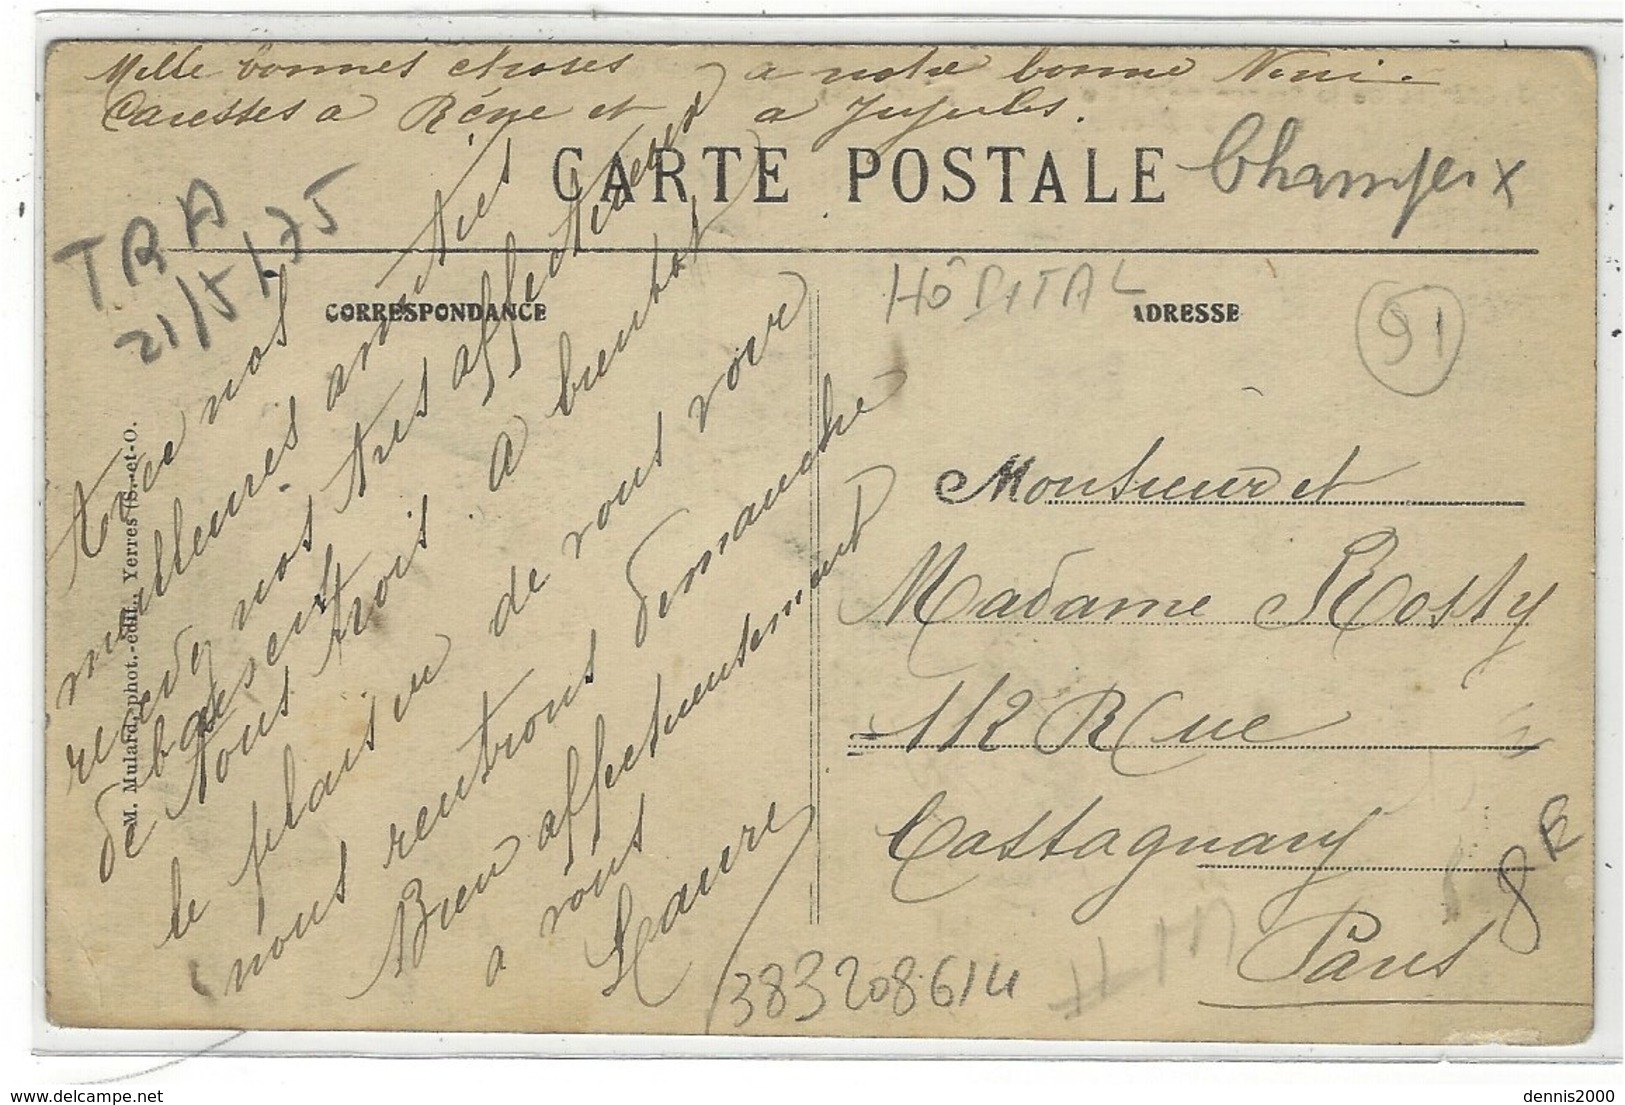 Mille bonnes choses a notre bonne Nini.
Caresses a Réne et a Jujules.
CARTE POSTALE
Champeix
TRA
21/5/75
CORRESPONDANCE
HÔPITAL
ADRESSE
91
Avec nos
meilleures amities
recevez nos tres affectueux
de baisers
tous trois. A bientot
le plaisir de vous voir
nous rentrons dimanche
Bien affectueusement
a vous
Laure
M. Mulard, phot.-édit., Yerres (S.-et-O.
Monsieur et
Madame Rosty
112 Rue
Castagnary
Paris
8E
383208614
delcampe.net
dennis2000